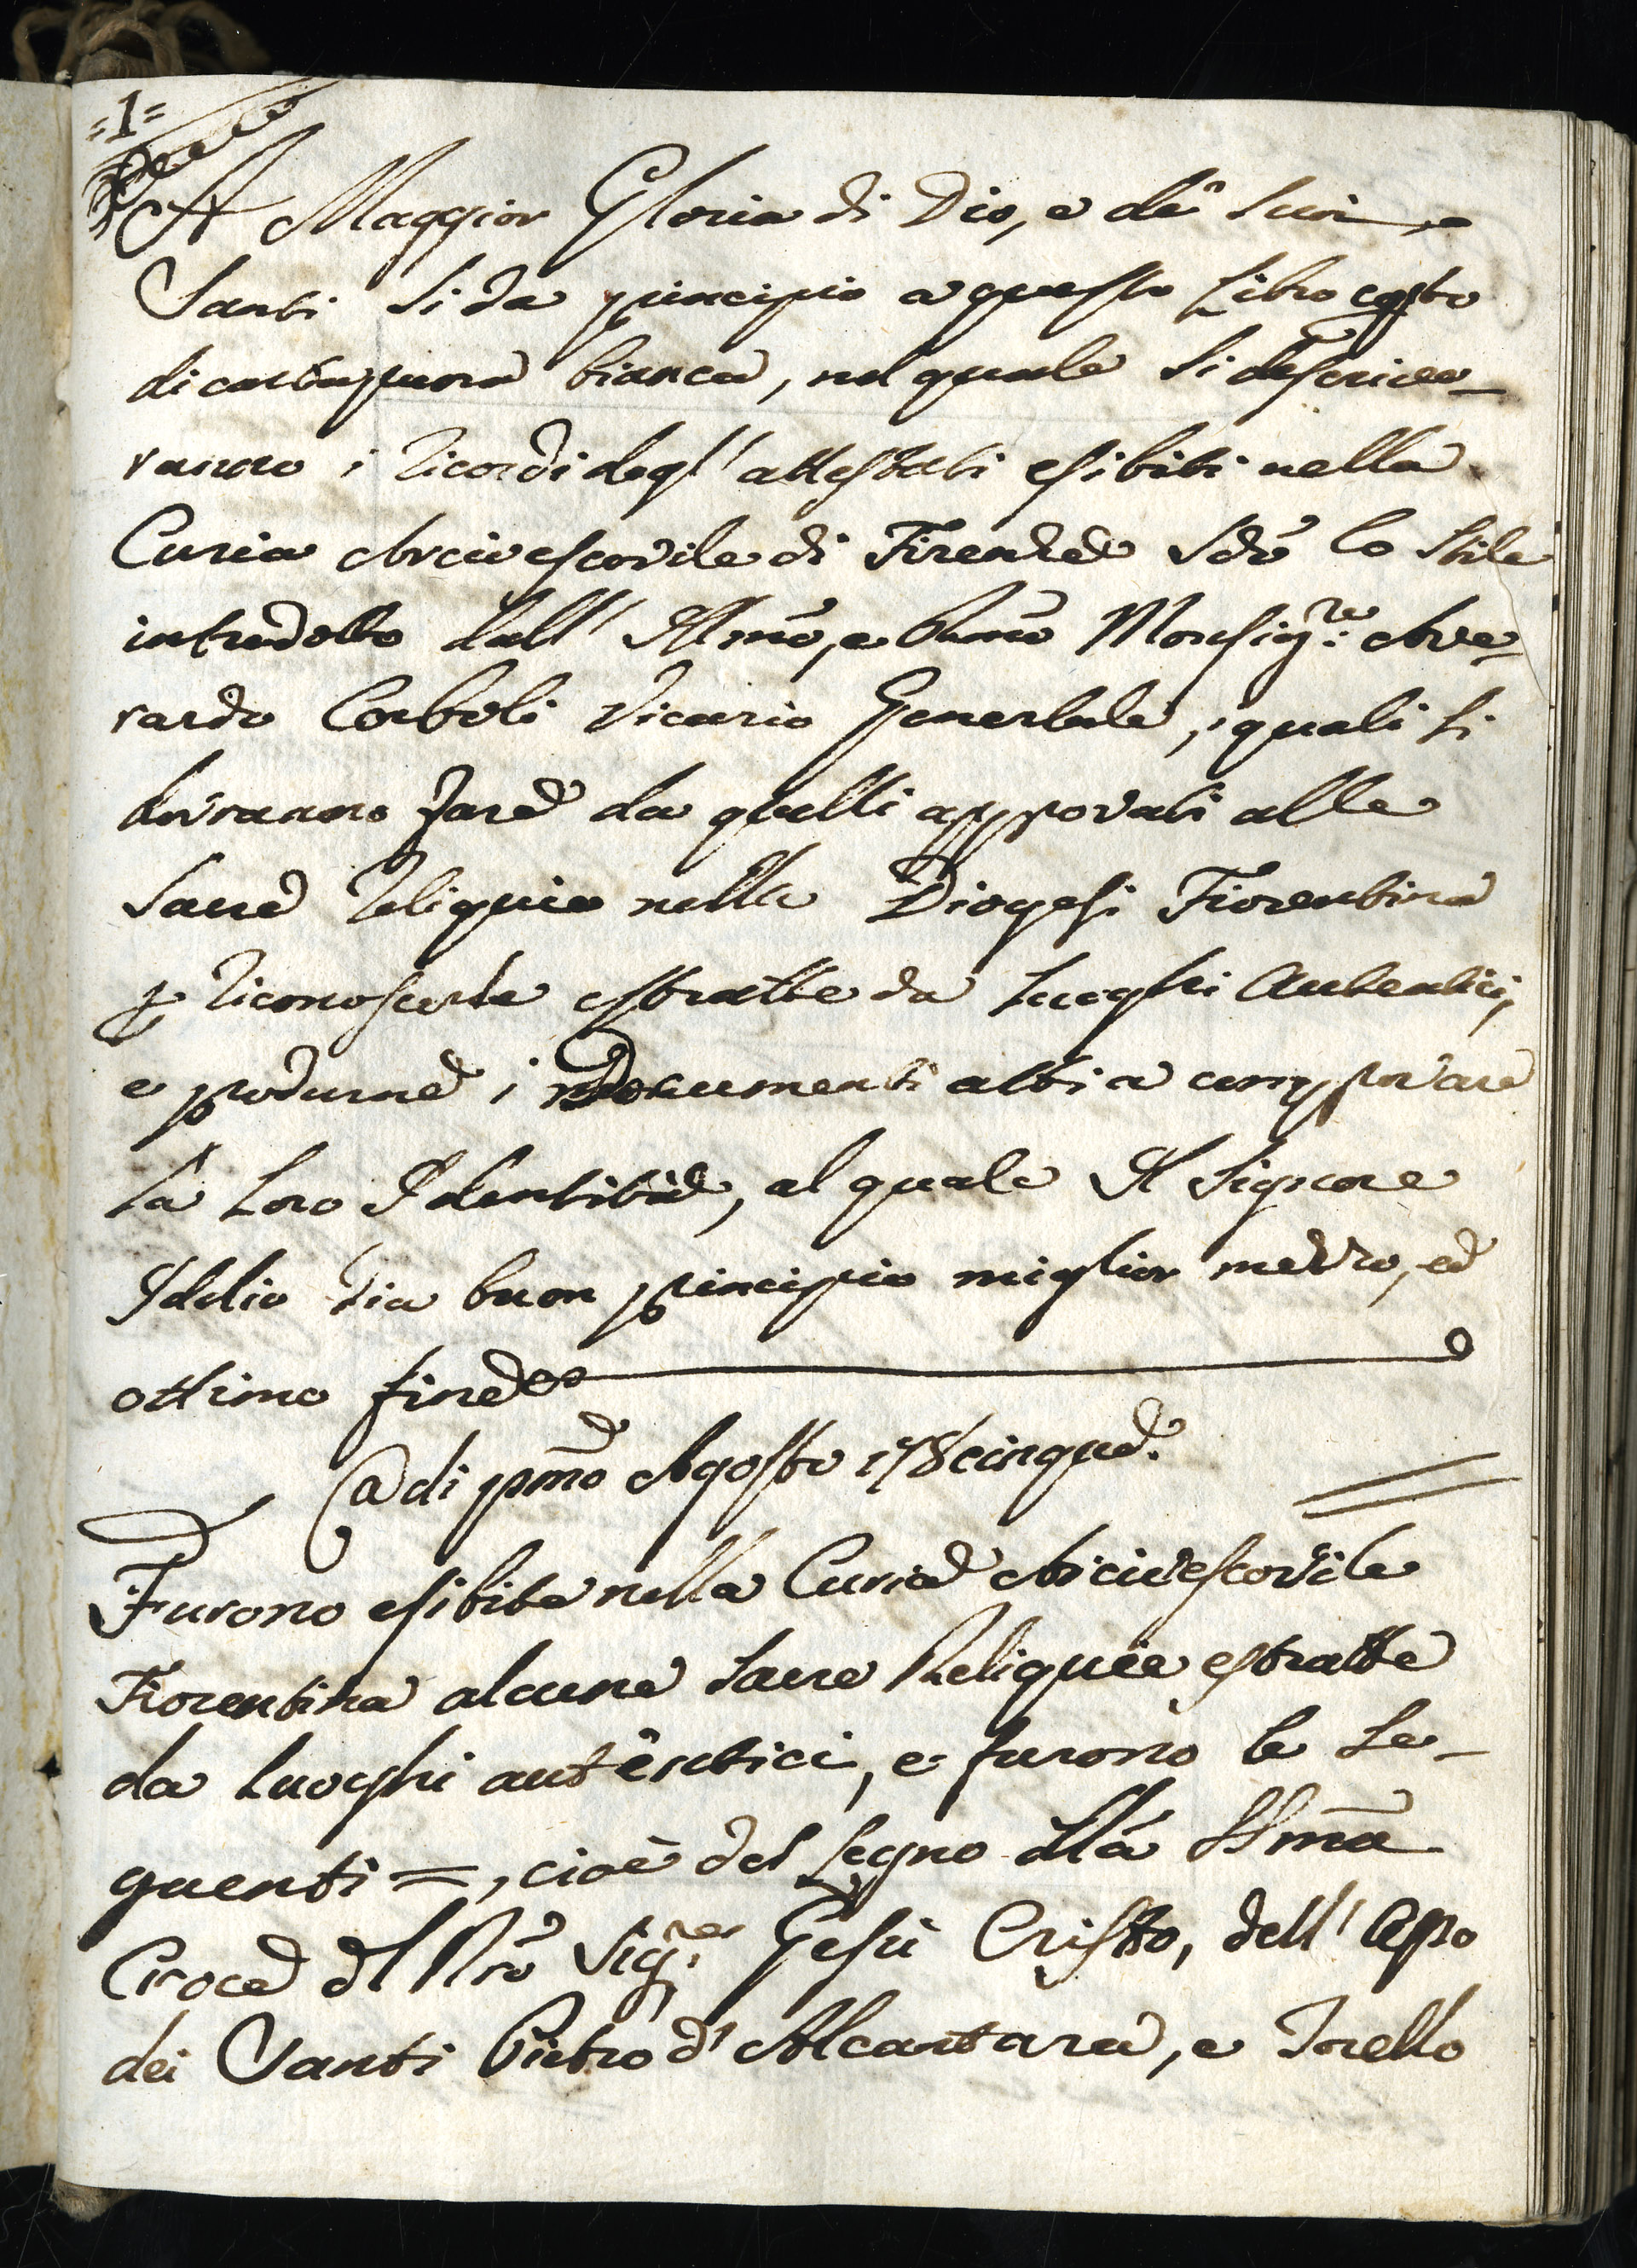 =1=
A Maggior Gloria di Dio, e de' suoi
Santi si da principio a questo Libro
di carta pura bianca, nel quale si descrive-
ranno i ricordi degl' attestati esibiti nella
Curia Arcivescovile di Firenze sdõ lo stile
introdotto dall' Illmõ, e Rmõ Monsig.re Ave-
rardo Corboli Vicario Generlale, i quali si
dovranno fare da quelli approvati alle
Sacre Reliquie nella Diogesi Fiorentina
p riconoscerle estratte da luoghi Autentici,
e produrne i documenti atti a comprovare
la loro Identità, al quale Il Signore
Iddio dia buon principio miglior mezzo, ed
ottimo fine
Adi pmõ Agosto 178cinque.
Furono esibite nella Curia Arcivescovile
Fiorentina alcune Sacre Reliquie estratte
da luoghi autentici, e furono le se-
guenti =, cioè del Legno dlla SSmã
Croce dl Nrõ Sig.re Gesù Cristo, dell'
dei Santi Pietro d' Alcantara, e Torello